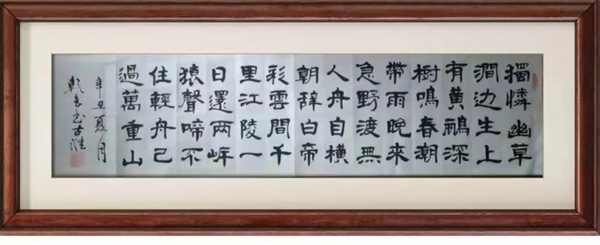 獨憐幽草
澗边生上
有黄鸝深
樹鳴春潮
帶雨晚來
急野渡無
人舟自橫
朝辭白帝
彩雲間千
里江陵一
日還兩岸
猿聲啼不
住輕舟已
過萬重山
辛丑夏月